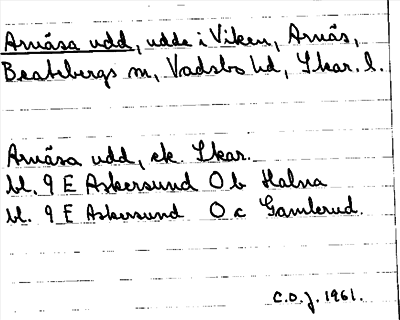 Arnäsa udd, udde i Viken, Arnäs,
Beatebergs sn, Vadsbo hd, Skar. l.
Arnäsa udd, ek. Skar.
bl. 9 E Askersund O b Halna
bl. 9 E Askersund O c Gamlerud.
C.O.J. 1961.